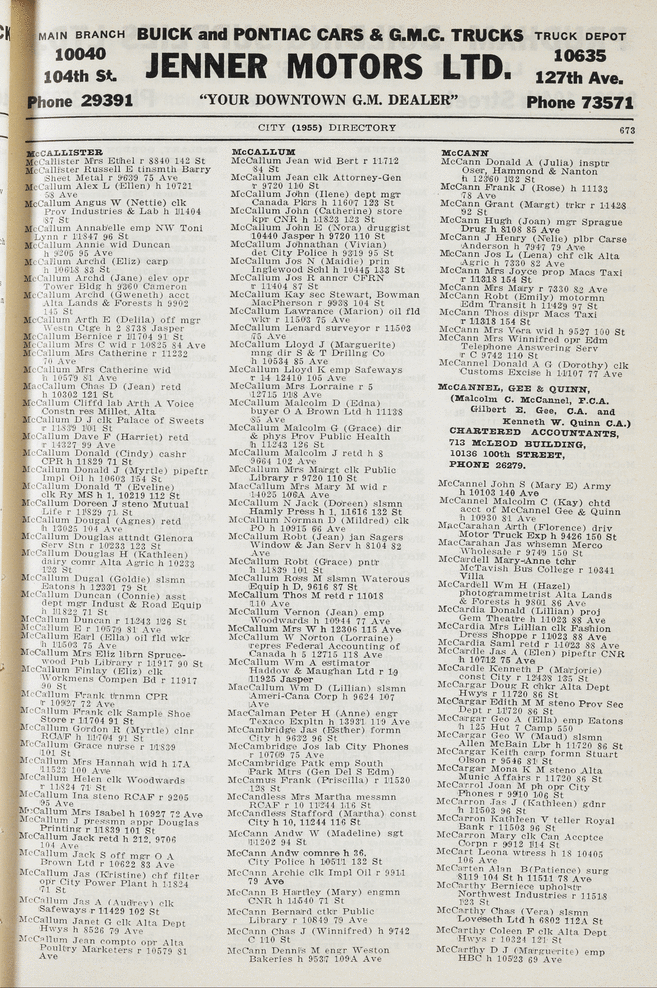 MAIN BRANCH
10040
104th St.
Phone 29391
BUICK and PONTIAC CARS & G.M.C. TRUCKS
JENNER MOTORS LTD.
"YOUR DOWNTOWN G.M. DEALER"
TRUCK DEPOT
10635
127th Ave.
Phone 73571
CITY (1955) DIRECTORY
673
McCALLISTER
McCallister Mrs Ethel r 8840 142 St
McCallister Russell E tinsmth Barry
Sheet Metal r 9639 75 Ave
McCallum Alex L (Ellen) h 10721
58 Ave
McCallum Angus W (Nettie) clk
Prov Industries & Lab h 11404
87 St
McCallum Annabelle emp NW Toni
Lynn r 11847 96 St
McCallum Annie wid Duncan
h 9205 95 Ave
McCallum Archd (Eliz) carp
h 10618 83 St
McCallum Archd (Jane) elev opr
Tower Bldg h 9360 Cameron
McCallum Archd (Gweneth) acct
Alta Lands & Forests h 9902
145 St
McCallum Arth E (Delila) off mgr
Westn Ctge h 2 8738 Jasper
McCallum Bernice r 11704 91 St
McCallum Mrs C wid r 10825 84 Ave
McCallum Mrs Catherine r 11232
70 Ave
McCallum Mrs Catherine wid
h 10579 81 Ave
MacCallum Chas D (Jean) retd
h 10302 121 St
McCallum Cliffd lab Arth A Voice
Constn res Millet, Alta
McCallum D J clk Palace of Sweets
r 11839 101 St
McCallum Dave F (Harriet) retd
r 14327 99 Ave
McCallum Donald (Cindy) cashr
CPR h 11829 71 St
McCallum Donald J (Myrtle) pipeftr
Impl Oil h 10603 154 St
McCallum Donald T (Eveline)
clk Ry MS h 1, 10219 112 St
McCallum Doreen J steno Mutual
Life r 11829 71 St
McCallum Dougal (Agnes) retd
h 13025 104 Ave
McCallum Douglas attndt Glenora
Serv Stn r 10233 123 St
McCallum Douglas H (Kathleen)
dairy comr Alta Agric h 10233
123 St
McCallum Dugal (Goldie) slsmn
Eatons h 12331 79 St
McCallum Duncan (Connie) asst
dept mgr Indust & Road Equip
h 11822 71 St
McCallum Duncan r 11243 126 St
McCallum E r 10579 81 Ave
McCallum Earl (Ella) oil fld wkr
h 11503 75 Ave
McCallum Mrs Eliz librn Spruce-
wood Pub Library r 11917 90 St
McCallum Finlay (Eliz) clk
Workmens Compen Bd r 11917
90 St
McCallum Frank trnmn CPR
r 10927 72 Ave
McCallum Frank clk Sample Shoe
Store r 11704 91 St
McCallum Gordon R (Myrtle) clnr
RCAF h 11704 91 St
McCallum Grace nurse r 11839
101 St
McCallum Mrs Hannah wid h 17A
11523 100 Ave
McCallum Helen clk Woodwards
r 11824 71 St
McCallum Ina steno RCAF r 9205
95 Ave
McCallum Mrs Isabel h 10927 72 Ave
McCallum J pressmn appr Douglas
Printing r 11839 101 St
McCallum Jack retd h 212, 9706
104 Ave
McCallum Jack S off mgr O A
Brown Ltd r 10622 83 Ave
McCallum Jas (Kristine) chf filter
opr City Power Plant h 11824
71 St
McCallum Jas A (Audrey) clk
Safeways r 11429 102 St
McCallum Janet G clk Alta Dept
Hwys h 8526 79 Ave
McCallum Jean compto opr Alta
Poultry Marketers r 10579 81
Ave
McCALLUM
McCallum Jean wid Bert r 11712
84 St
McCallum Jean clk Attorney-Gen
r 9720 110 St
McCallum John (Ilene) dept mgr
Canada Pkrs h 11607 123 St
McCallum John (Catherine) store
kpr CNR h 11823 123 St
McCallum John E (Nora) druggist
10440 Jasper h 9720 110 St
McCallum Johnathan (Vivian)
det City Police h 9319 95 St
McCallum Jos N (Maidie) prin
Inglewood Schl h 10445 133 St
McCallum Jos R anncr CFRN
r 11404 87 St
McCallum Kay sec Stewart, Bowman
MacPherson r 9938 104 St
McCallum Lawrance (Marion) oil fld
wkr r 11503 75 Ave
McCallum Lenard surveyor r 11503
75 Ave
McCallum Lloyd J (Marguerite)
mng dir S & T Drillng Co
h 10534 85 Ave
McCallum Lloyd K emp Safeways
r 14 12410 105 Ave
McCallum Mrs Lorraine r 5
12715 118 Ave
McCallum Malcolm D (Edna)
buyer O A Brown Ltd h 11138
85 Ave
McCallum Malcolm G (Grace) dir
& phys Prov Public Health
h 11243 126 St
McCallum Malcolm J retd h 8
9664 102 Ave
McCallum Mrs Margt clk Public
Library r 9720 110 St
MacCallum Mrs Mary M wid r
14025 106A Ave
McCallum N Jack (Doreen) slsmn
Hamly Press h 1, 11616 132 St
McCallum Norman D (Mildred) clk
PO h 10915 66 Ave
McCallum Robt (Jean) jan Sagers
Window & Jan Serv h 8104 82
Ave
McCallum Robt (Grace) pntr
h 11839 101 St
McCallum Ross M slsmn Waterous
Equip h D, 9616 87 St
McCallum Thos M retd r 11018
110 Ave
McCallum Vernon (Jean) emp
Woodwards h 10944 77 Ave
McCallum Mrs W h 12306 115 Ave
McCallum W Norton (Lorraine)
repres Federal Accounting of
Canada h 5 12715 118 Ave
McCallum Wm A estimator
Haddow & Maughan Ltd r 19
11925 Jasper
MacCallum Wm D (Lillian) slsmn
Ameri-Cana Corp h 9624 107
Ave
MacCalman Peter H (Anne) engr
Texaco Expltn h 13931 119 Ave
McCambridge Jas (Esther) formn
City h 9632 96 St
McCambridge Jos lab City Phones
r 10769 75 Ave
McCambridge Patk emp South
Park Mtrs (Gen Del S Edm)
McCamus Frank (Priscilla) r 11530
128 St
McCandless Mrs Martha messmn
RCAF r 10 11244 116 St
McCandless Stafford (Martha) const
City h 10, 11244 116 St
McCann Andw W (Madeline) sgt
11202 94 St
McCann Andw comnre h 36,
City Police h 10511 132 St
McCann Archie clk Impl Oil r 9911
79 Ave
McCann B Hartley (Mary) engmn
CNR h 14540 71 St
McCann Bernard ctkr Public
Library r 10849 79 Ave
McCann Chas J (Winnifred) h 9742
C 110 St
McCann Dennis M engr Weston
Bakeries h 9537 109A Ave
McCANN
McCann Donald A (Julia) insptr
Oser, Hammond & Nanton
h 12360 132 St
McCann Frank J (Rose) h 11133
78 Ave
McCann Grant (Margt) trkr r 11428
92 St
McCann Hugh (Joan) mgr Sprague
Drug h 8108 85 Ave
McCann J Henry (Nelie) plbr Carse
Anderson h 7947 79 Ave
McCann Jos L (Lena) chf clk Alta
Agric h 7330 82 Ave
McCann Mrs Joyce prop Macs Taxi
r 11318 154 St
McCann Mary r 7330 82 Ave
McCann Robt (Emily) motormn
Edm Transit h 11429 97 St
McCann Thos dispr Macs Taxi
r 11318 154 St
McCann Mrs Vera wid h 9527 100 St
McCann Mrs Winnifred opr Edm
Telephone Answering Serv
r C 9742 110 St
McCannel Donald A G (Dorothy) clk
Customs Excise h 11107 77 Ave
McCANNEL, GEE & QUINN,
(Malcolm C. McCannel, F.C.A.
Gilbert E. Gee, C.A. and
Kenneth W. Quinn C.A.)
CHARTERED ACCOUNTANTS,
713 McLEOD BUILDING,
10136 100th STREET,
PHONE 26279.
McCannel John S (Mary E) Army
h 10103 140 Ave
McCannel Malcolm C (Kay) chtd
acct of McCannel Gee & Quinn
h 10930 81 Ave
MacCarahan Arth (Florence) driv
Motor Truck Exp h 9426 150 St
MacCarahan Jas whsemn Merco
Wholesale r 9749 150 St
McCardell Mary-Anne tchr
McTavish Bus College r 10341
Villa
McCardell Wm H (Hazel)
photogrammetrist Alta Lands
& Forests h 9801 86 Ave
McCardia Donald (Lillian) proj
Gem Theatre h 11023 88 Ave
McCardia Mrs Lillian clk Fashion
Dress Shoppe r 11023 88 Ave
McCardia Saml retd r 11023 88 Ave
McCardle Jas A (Ellen) pipeftr CNR
h 10712 75 Ave
McCardle Kenneth P (Marjorie)
const City r 12438 135 St
McCargar Doug R chkr Alta Dept
Hwys r 11720 86 St
McCargar Edith M M steno Prov Sec
Dept r 11720 86 St
McCargar Geo A (Ella) emp Eatons
h 125 Hut 7 Camp 550
McCargar Geo W (Maud) slsmn
Allen McBain Lbr h 11720 86 St
McCargar Keith carp formn Stuart
Olson r 9546 81 St
McCargar Mona K M steno Alta
Munic Affairs r 11720 86 St
McCarrol Joan M ph opr City
Phones r 9910 106 St
McCarron Jas J (Kathleen) gdnr
h 11503 96 St
McCarron Kathleen V teller Royal
Bank r 11503 96 St
McCarron Mary clk Can Accptce
Corpn r 9912 114 St
McCart Leona wtress h 18 10405
106 Ave
McCarten Alan B(Patience) surg
8119 104 St h 11511 78 Ave
McCarthy Berniece upholstr
Northwest Industries r 11518
123 St
McCarthy Chas (Vera) slsmn
Loveseth Ltd h 6802 112A St
McCarthy Coleen F clk Alta Dept
Hwys r 10324 121 St
McCarthy D J (Marguerite) emp
HBC h 10523 69 Ave